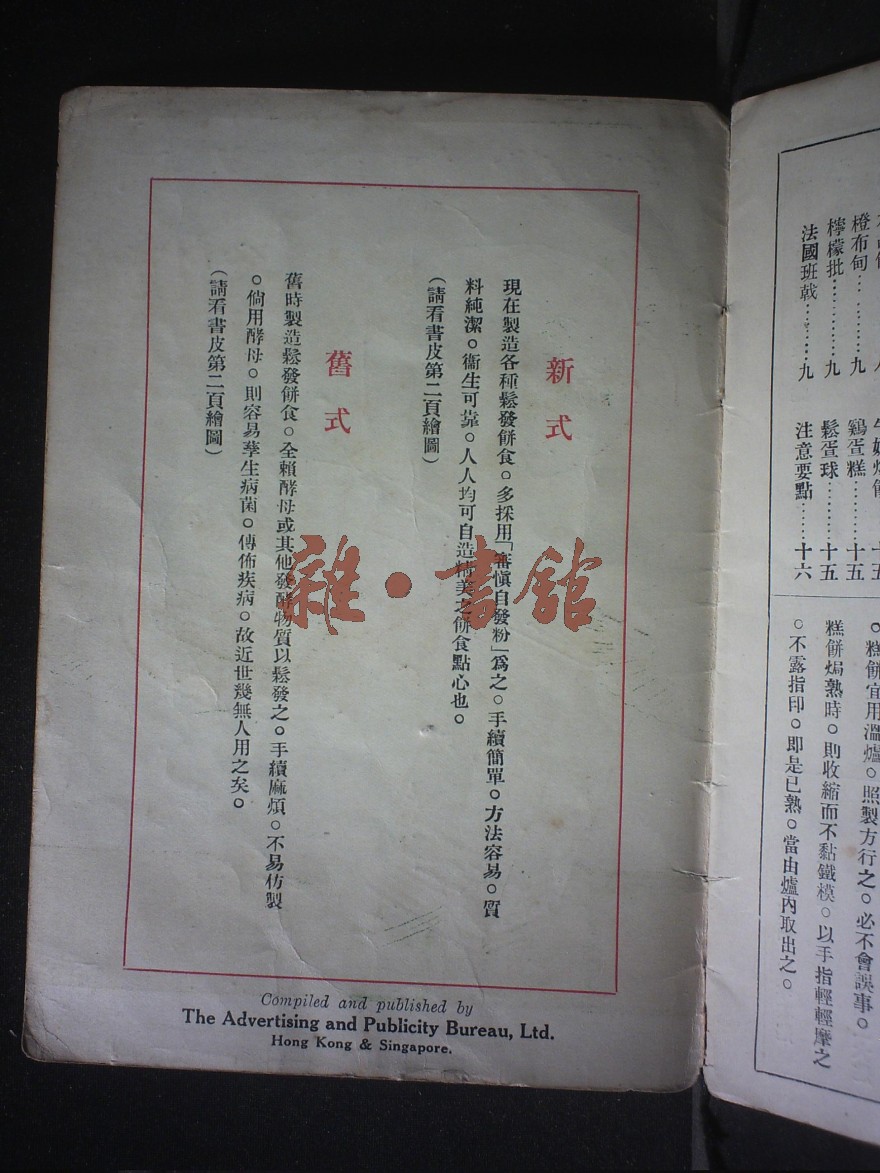 新式
現在製造各種鬆發餅食。多採用「審慎自發粉」爲之。手續簡單。方法容易。質
料純潔。衞生可靠。人人均可自造精美之餅食點心也。
(請看書皮第二頁繪圖)
舊式
舊時製造鬆發餅食。全賴酵母或其他發酵物質以鬆發之。手續麻煩。不易仿製
。倘用酵母。則容易孳生病菌。傳佈疾病。故近世幾無人用之矣。
(請看書皮第二頁繪圖)
Compiled and published by
The Advertising and Publicity Bureau, Ltd.
Hong Kong & Singapore.
雜·書舘
橙布甸…………九
檸檬批…………九
法國班戟………九
鷄蛋糕………十五
鬆蛋球………十五
注意要點……十六
。糕餅宜用溫爐。照製方行之。必不會誤事。
糕餅焗熟時。則收縮而不黏鐵模。以手指輕輕摩之
。不露指印。即是已熟。當由爐內取出之。